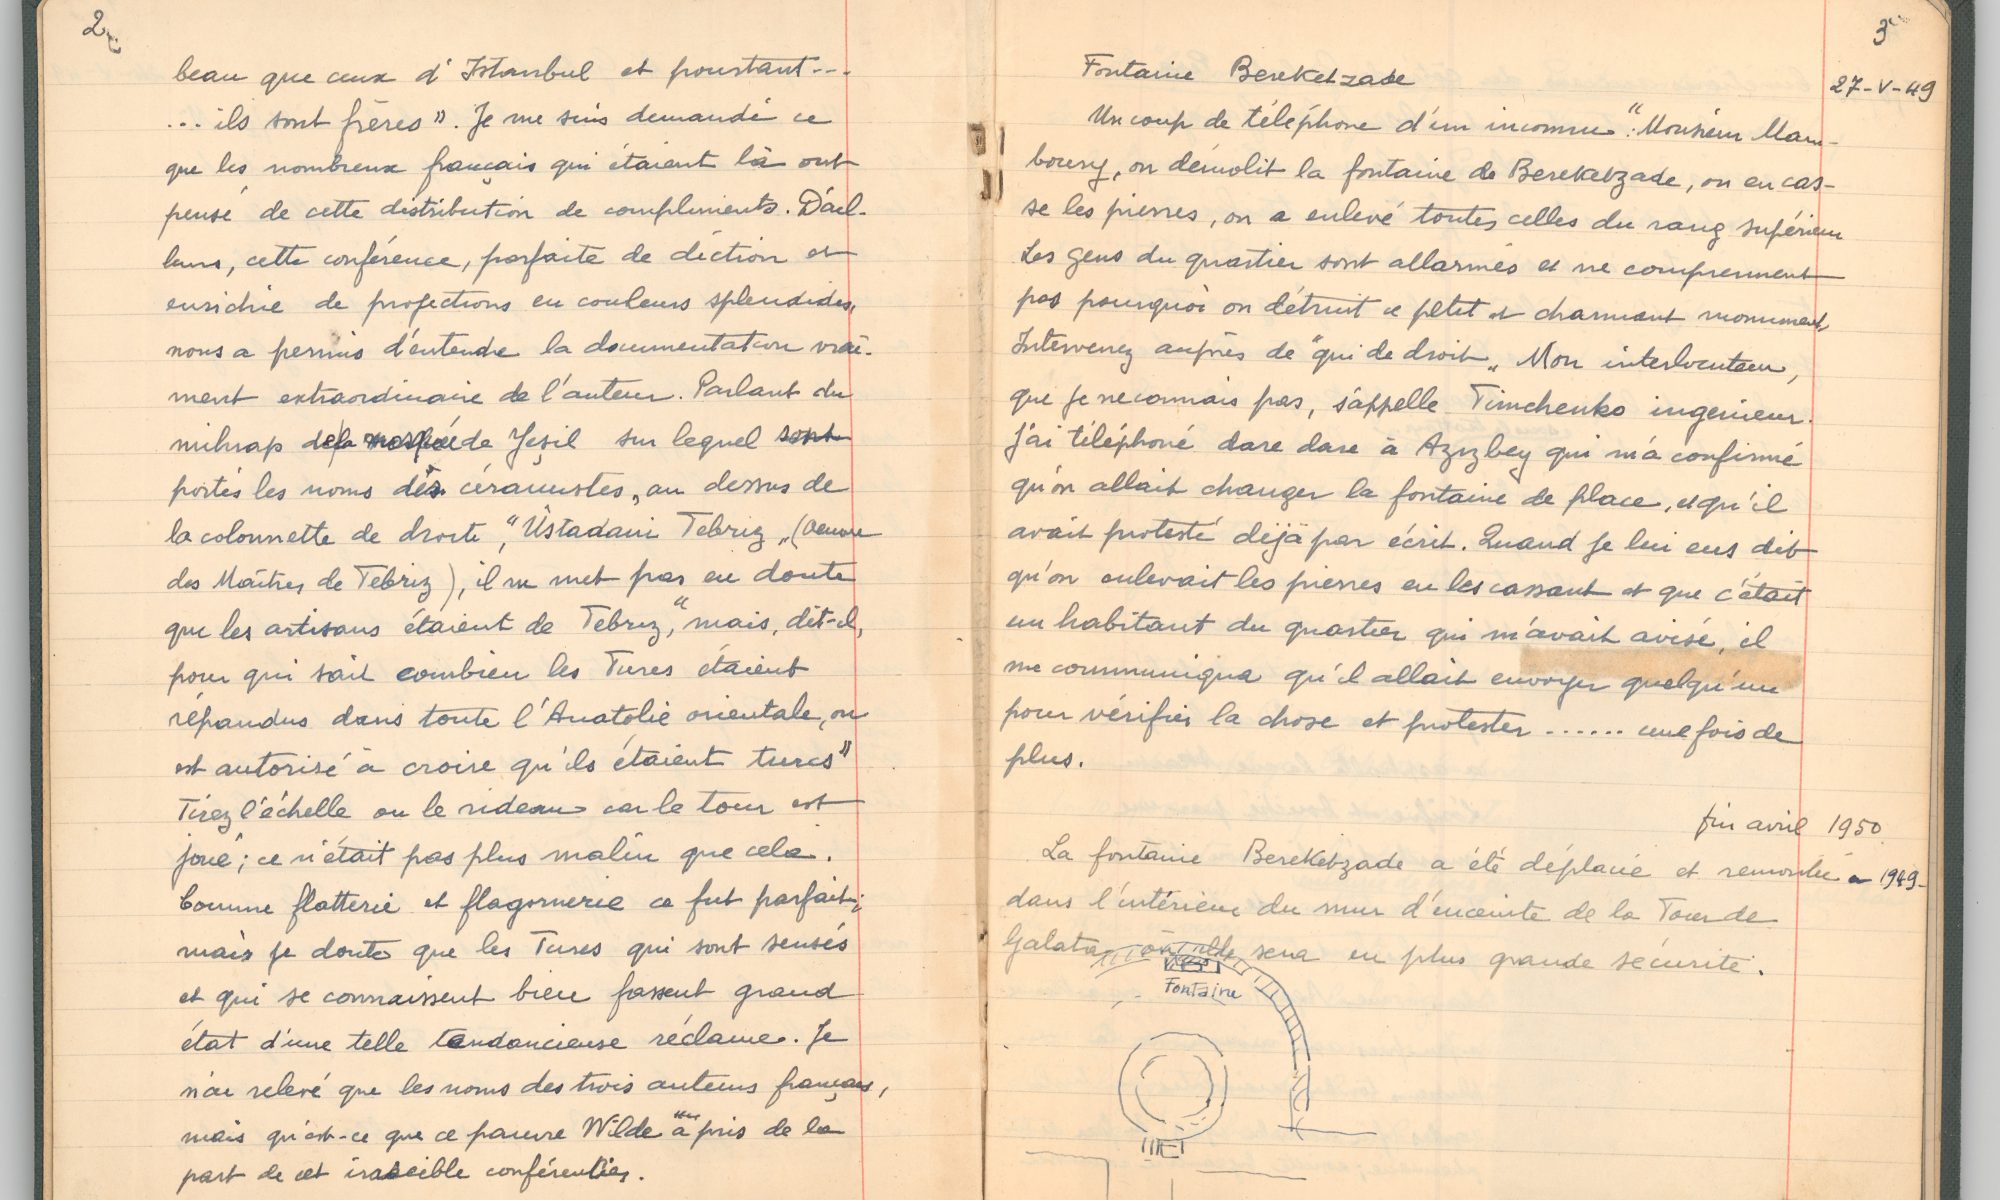 2
beau que ceux d'Istanbul et pourtant...
... ils sont frères". Je me suis demandé ce
que les nombreux français qui étaient là ont
pensé de cette distribution de compliments. D'ail-
leurs, cette conférence, parfaite de diction et
enrichie de projections en couleurs splendides,
nous a permis d'entendre la documentation vrai-
ment extraordinaire de l'auteur. Parlant du
mihrap de la mosquée de Yeşil sur lequel sont
portés les noms des céramistes, au dessus de
la colonnette de droite, "Üstadani Tebriz" (Oeuvre
des Maîtres de Tebriz), il ne met pas en doute
que les artisans étaient de Tebriz, "mais, dit-il,
pour qui sait combien les Turcs étaient
répandus dans toute l'Anatolie orientale, on
est autorisé à croire qu'ils étaient turcs"
Tirez l'échelle ou le rideau car le tour est
joué; ce n'était pas plus malin que cela.
Comme flatterie et flagornerie ce fut parfait;
mais je doute que les Turcs qui sont sensés
et qui se connaissent bien fassent grand
état d'une telle tendancieuse réclame. Je
n'ai relevé que les noms des trois auteurs français,
mais qu'est-ce que ce pauvre Wilde a pris de la
part de cet irascible conférencier.
3
27-V-49
Fontaine Bereketzade
Un coup de téléphone d'un inconnu: "Monsieur Mam-
boury, on démolit la fontaine de Bereketzade, on en cas-
se les pierres, on a enlevé toutes celles du rang supérieur
Les gens du quartier sont allarmés et ne comprennent
pas pourquoi on détruit ce petit et charmant monument
Intervenez auprès de "qui de droit" Mon interlocuteur,
que je ne connais pas, s'appelle Timchenko ingenieur.
J'ai téléphoné dare dare à Azizbey qui m'a confirmé
qu'on allait changer la fontaine de place, et qu'il
avait protesté déjà par écrit. Quand je lui eus dit
qu'on enlevait les pierres en les cassant et que c'était
un habitant du quartier qui m'avait avisé, il
me communiqua qu'il allait envoyer quelqu'un
pour vérifier la chose et protester ...... une fois de
plus.
fin avril 1950
La fontaine Bereketzade a été déplacée et remontée 1949-
dans l'intérieur du mur d'enceinte de la Tour de
Galata où elle sera en plus grande sécurité.
Fontaine